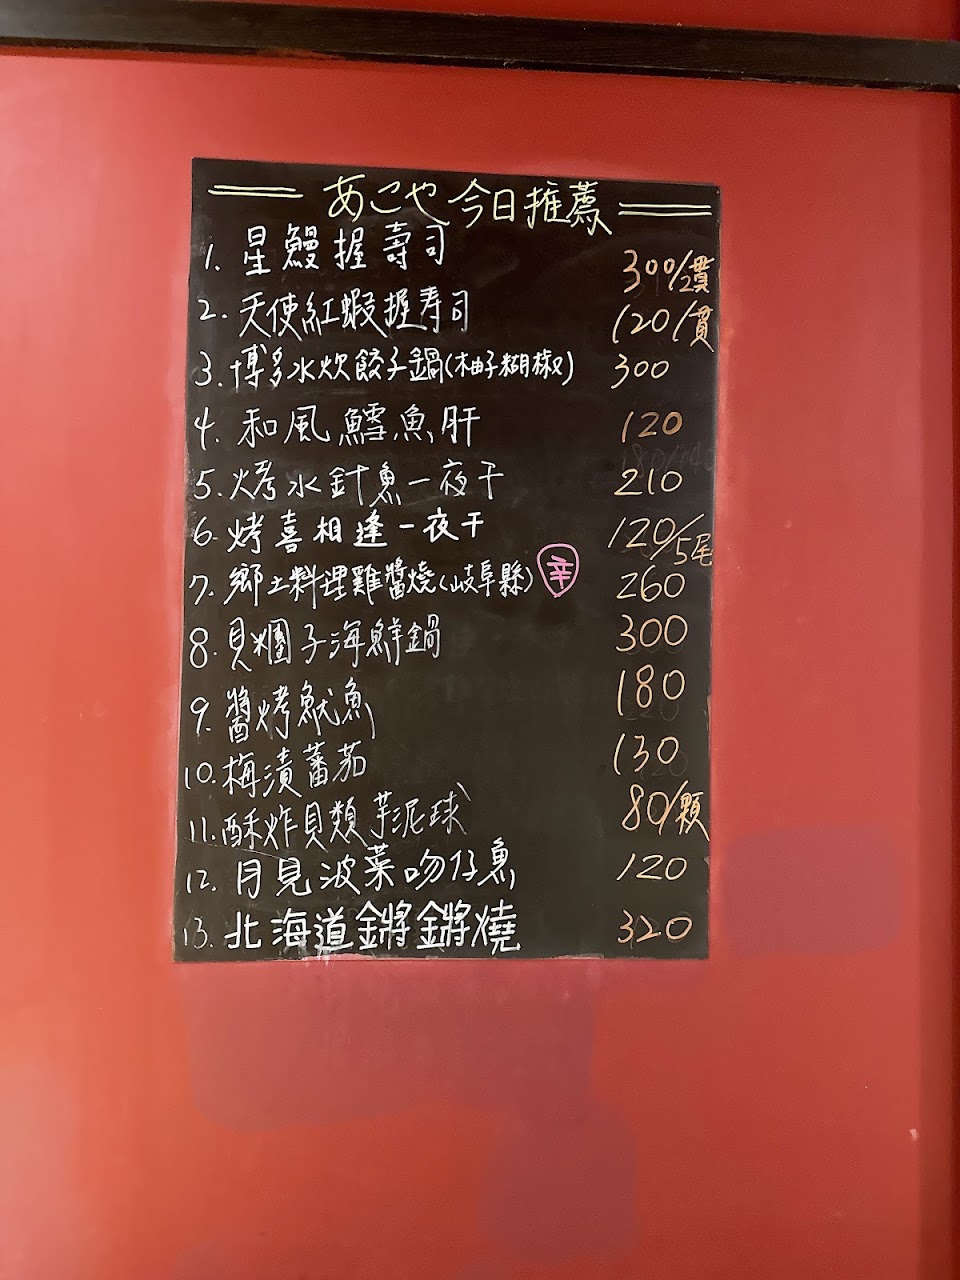 あこや今日推薦
1. 星鰻握壽司 300/2貫
2. 天使紅蝦握寿司 120/貫
3. 博多水炊餃子鍋(柚子糊椒) 300
4. 和風鱈魚肝 120
5. 烤水針魚一夜干 210
6. 烤喜相逢一夜干 120/5尾
7. 鄉土料理雞醬燒(岐阜縣) 辛 260
8. 貝糰子海鮮鍋 300
9. 醬烤魷魚 180
10. 梅漬蕃茄 130
11. 酥炸貝類芋泥球 80/顆
12. 月見波菜吻仔魚 120
13. 北海道鏘鏘燒 320